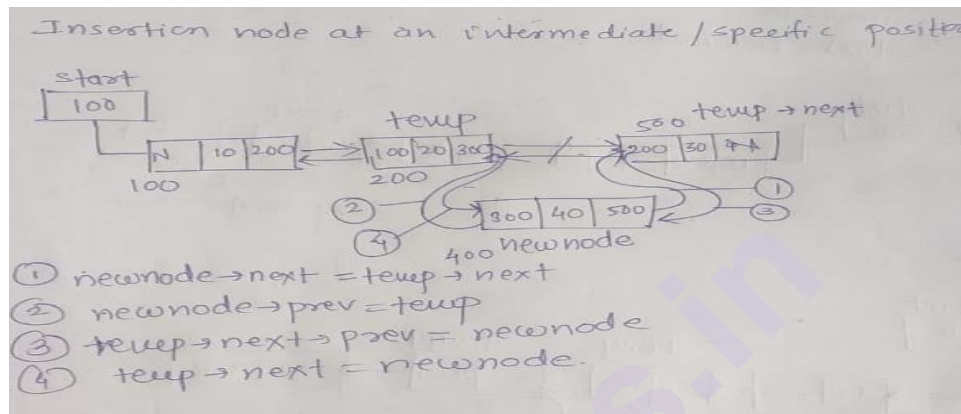 Insertion node at an intermediate/specific positio
start
100
temp
500 temp→next
N 10 200
100 20 300
200 30 NA
100
200
①
②
300 40 500
③
④
400 newnode
① newnode→next = temp→next
② newnode→prev = temp
③ temp→next→prev = newnode
④ temp→next = newnode.
s.in